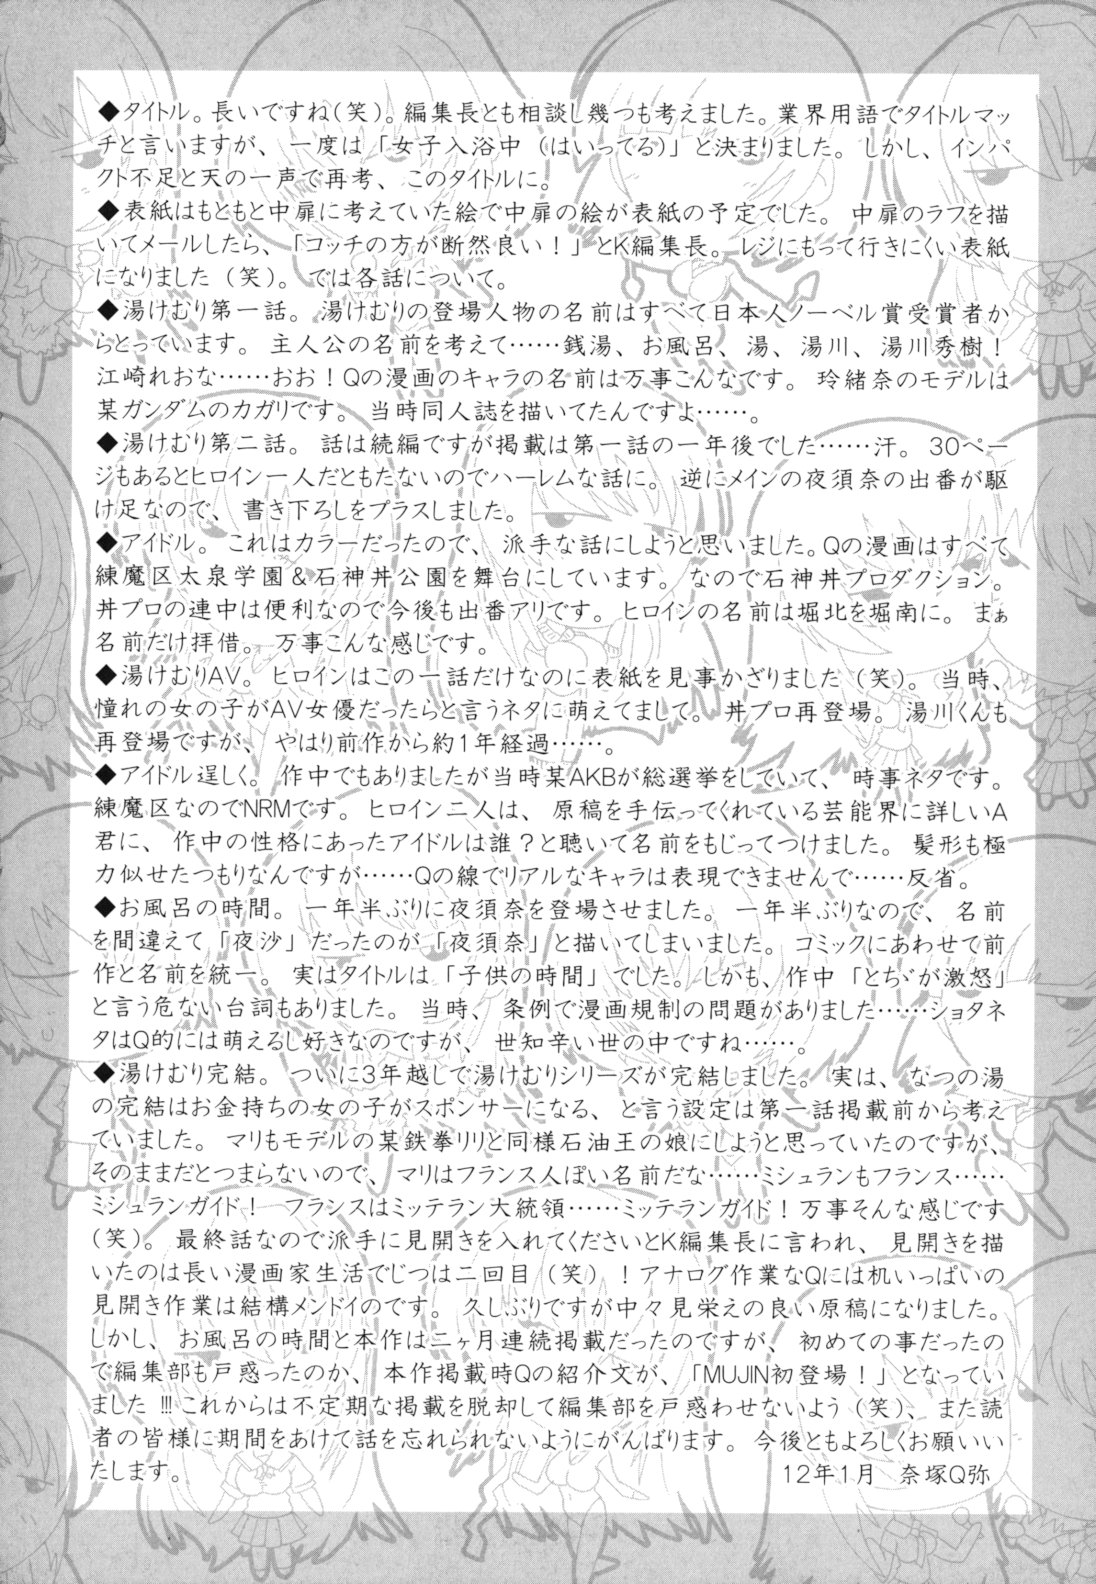 ◆タイトル。長いですね(笑)。編集長とも相談し幾つも考えました。業界用語でタイトルマッ
チと言いますが、一度は「女子入浴中（はいってる)」と決まりました。しかし、インパ
クト不足と天の一声で再考、このタイトルに。
◆表紙はもともと中扉に考えていた絵で中扉の絵が表紙の予定でした。中扉のラフを描
いてメールしたら、「コッチの方が断然良い！」とK編集長。レジにもって行きにくい表紙
になりました（笑）。では各話について。
◆湯けむり第一話。湯けむりの登場人物の名前はすべて日本人ノーベル賞受賞者か
らとっています。主人公の名前を考えて……銭湯、お風呂、湯、湯川、湯川秀樹！
江崎れおな……おお！Qの漫画のキャラの名前は万事こんなです。玲緒奈のモデルは
某ガンダムのカガリです。当時同人誌を描いてたんですよ……。
◆湯けむり第二話。話は続編ですが掲載は第一話の一年後でした……汗。30ペー
ジもあるとヒロイン一人だともたないのでハーレムな話に。逆にメインの夜須奈の出番が駆
け足なので、書き下ろしをプラスしました。
◆アイドル。これはカラーだったので、派手な話にしようと思いました。Qの漫画はすべて
練魔区太泉学園＆石神丼公園を舞台にしています。なので石神丼プロダクション。
丼プロの連中は便利なので今後も出番アリです。ヒロインの名前は堀北を堀南に。まぁ
名前だけ拝借。万事こんな感じです。
◆湯けむりAV。ヒロインはこの一話だけなのに表紙を見事かざりました（笑）。当時、
憧れの女の子がAV女優だったらと言うネタに萌えてまして。丼プロ再登場。湯川くんも
再登場ですが、やはり前作から約1年経過……。
◆アイドル逞しく。作中でもありましたが当時某AKBが総選挙をしていて、時事ネタです。
練魔区なのでNRMです。ヒロイン二人は、原稿を手伝ってくれている芸能界に詳しいA
君に、作中の性格にあったアイドルは誰？と聴いて名前をもじってつけました。髪形も極
力似せたつもりなんですが……Qの線でリアルなキャラは表現できませんで……反省。
◆お風呂の時間。一年半ぶりに夜須奈を登場させました。一年半ぶりなので、名前
を間違えて「夜沙」だったのが「夜須奈」と描いてしまいました。コミックにあわせて前
作と名前を統一。実はタイトルは、「子供の時間」でした。しかも、作中「とちゞが激怒」
と言う危ない台詞もありました。当時、条例で漫画規制の問題がありました……ショタネ
タはQ的には萌えるし好きなのですが、世知辛い世の中ですね……。
◆湯けむり完結。ついに3年越しで湯けむりシリーズが完結しました。実は、なつの湯
の完結はお金持ちの女の子がスポンサーになる、と言う設定は第一話掲載前から考え
ていました。マリもモデルの某鉄拳リリと同様石油王の娘にしようと思っていたのですが、
そのままだとつまらないので、マリはフランス人ぽい名前だな……ミシュランもフランス……
ミシュランガイド！　フランスはミッテラン大統領……ミッテランガイド！万事そんな感じです
(笑)。最終話なので派手に見開きを入れてくださいとK編集長に言われ、見開きを描
いたのは長い漫画家生活でじつは二回目（笑）！アナログ作業なQには机いっぱいの
見開き作業は結構メンドイのです。久しぶりですが中々見栄えの良い原稿になりました。
しかし、お風呂の時間と本作は二ヶ月連続掲載だったのですが、初めての事だったの
で編集部も戸惑ったのか、本作掲載時Qの紹介文が、「MUJIN初登場！」となってい
ました!!!これからは不定期な掲載を脱却して編集部を戸惑わせないよう（笑）、また読
者の皆様に期間をあけて話を忘れられないようにがんばります。今後ともよろしくお願いい
たします。
12年1月　奈塚Q弥